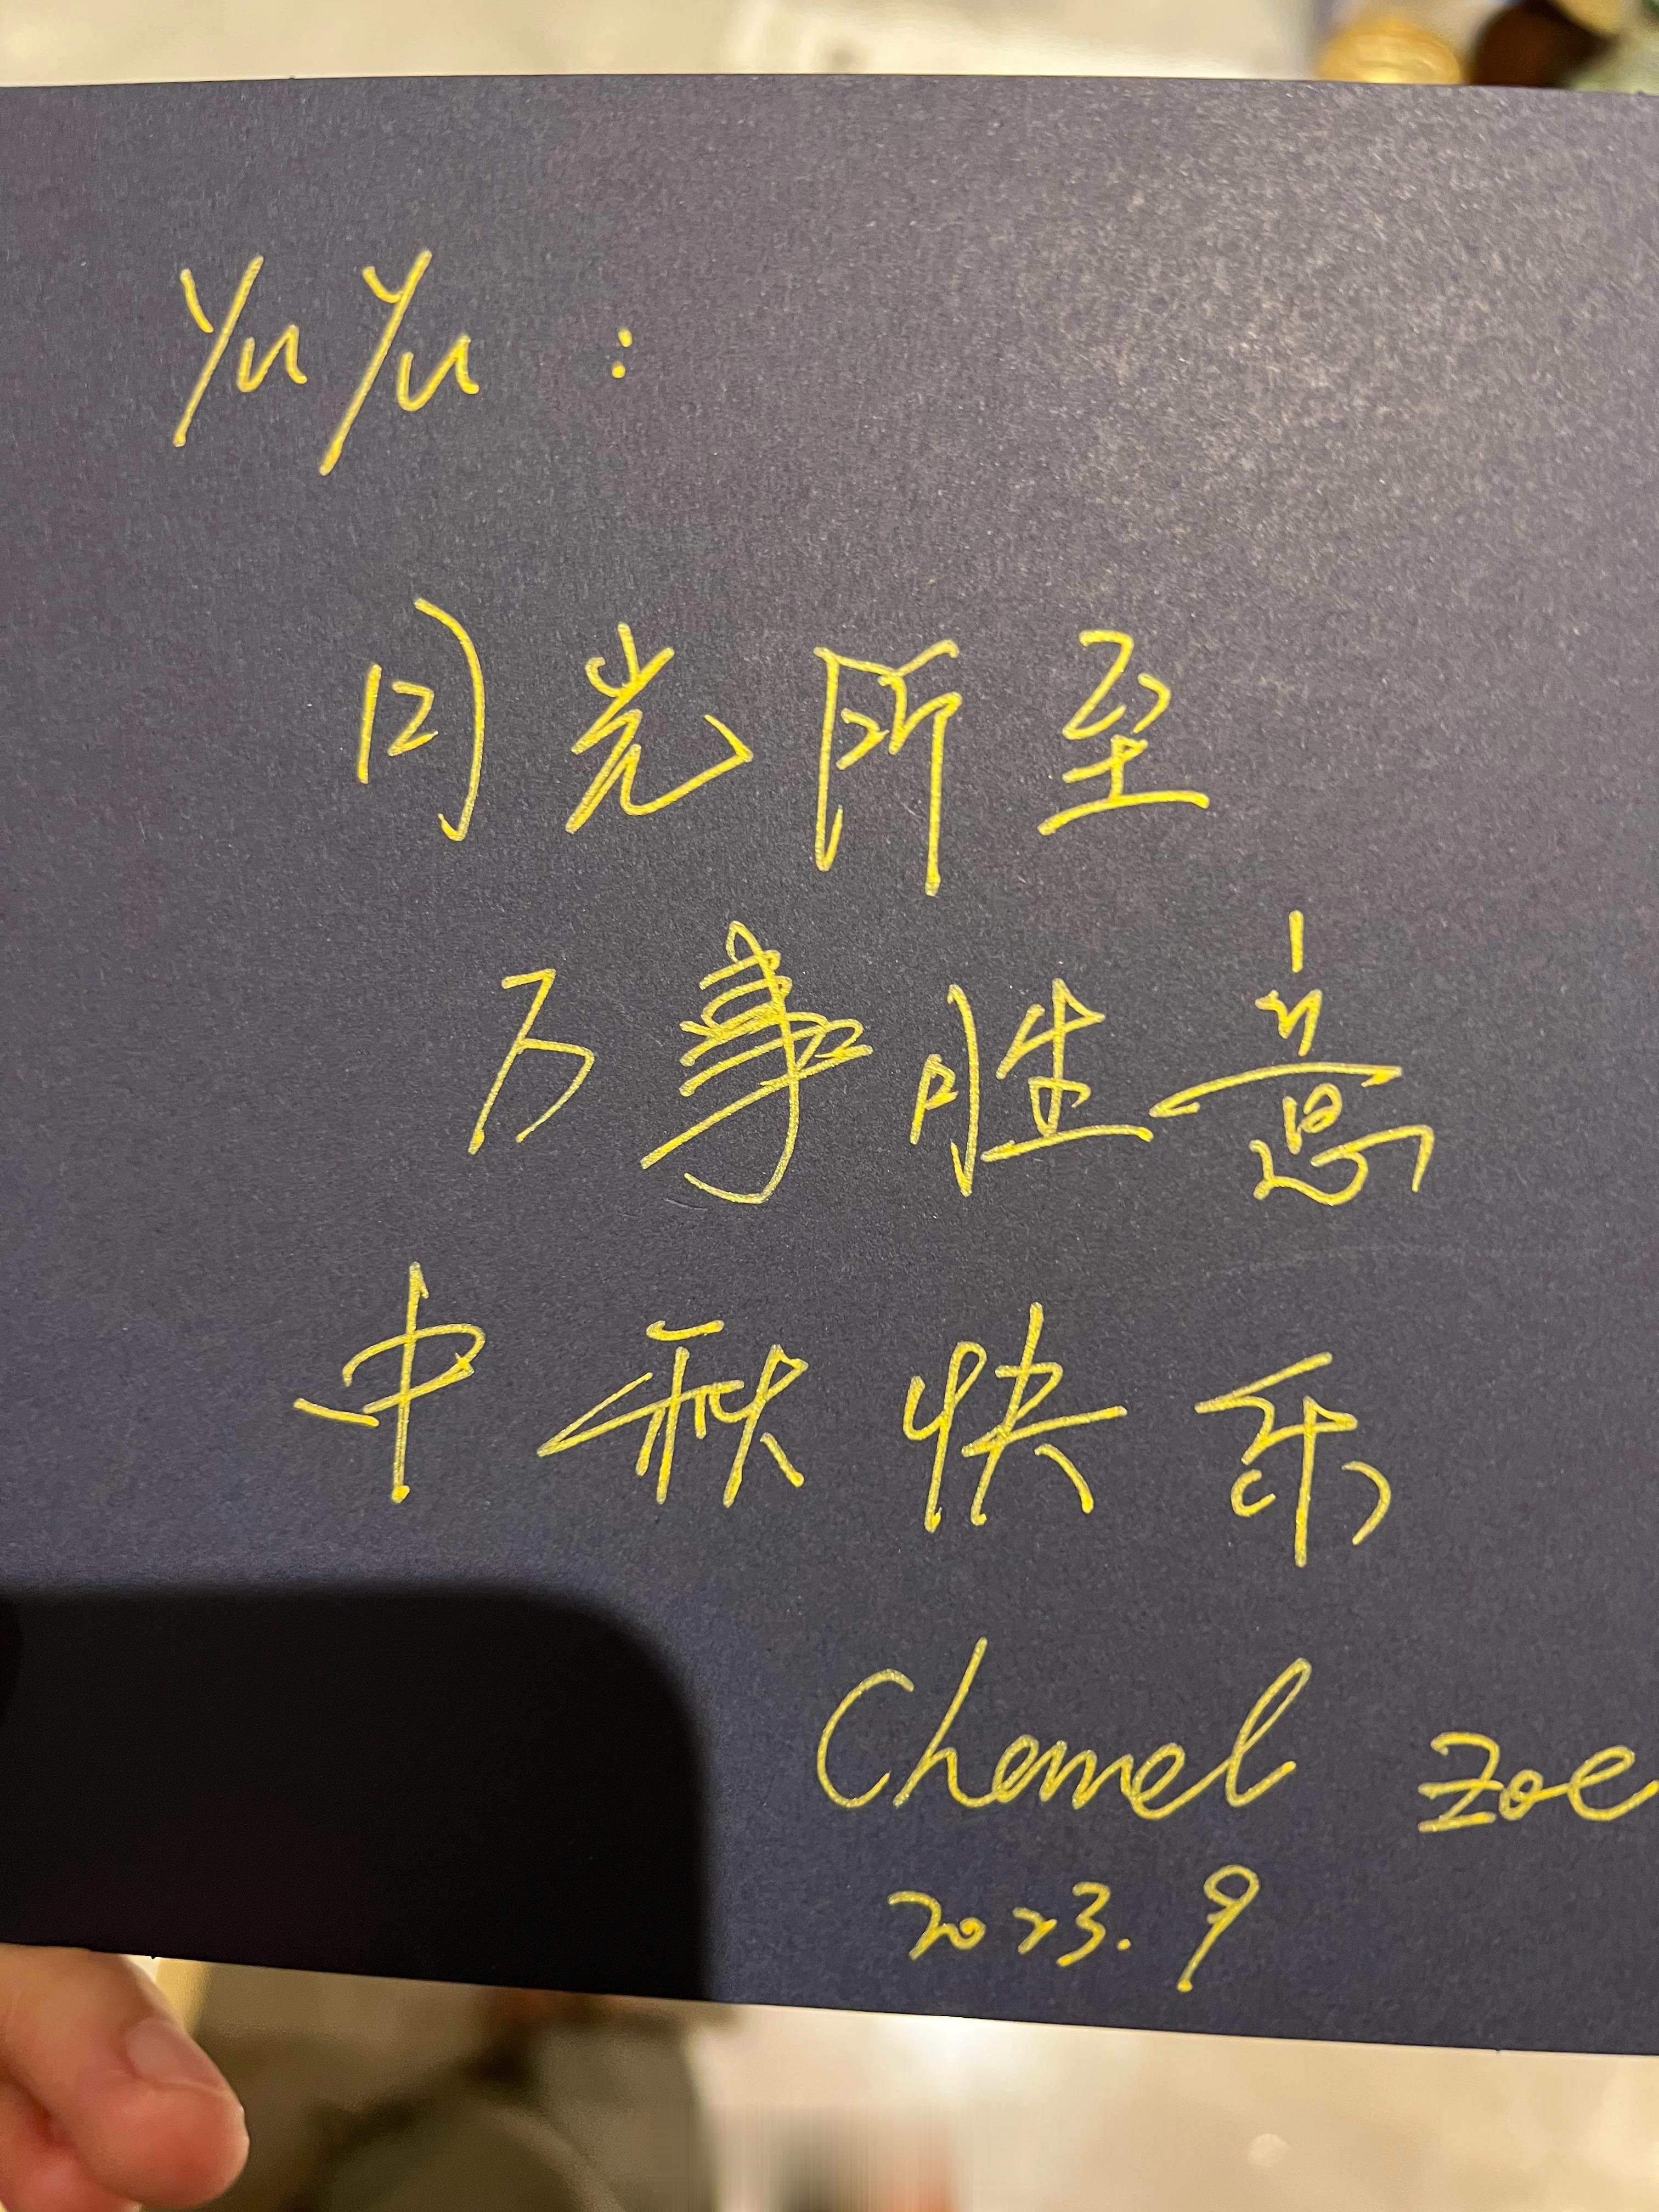 YuYu：
月光所至
万事胜意
中秋快乐
Chemel Zoe
2023.9